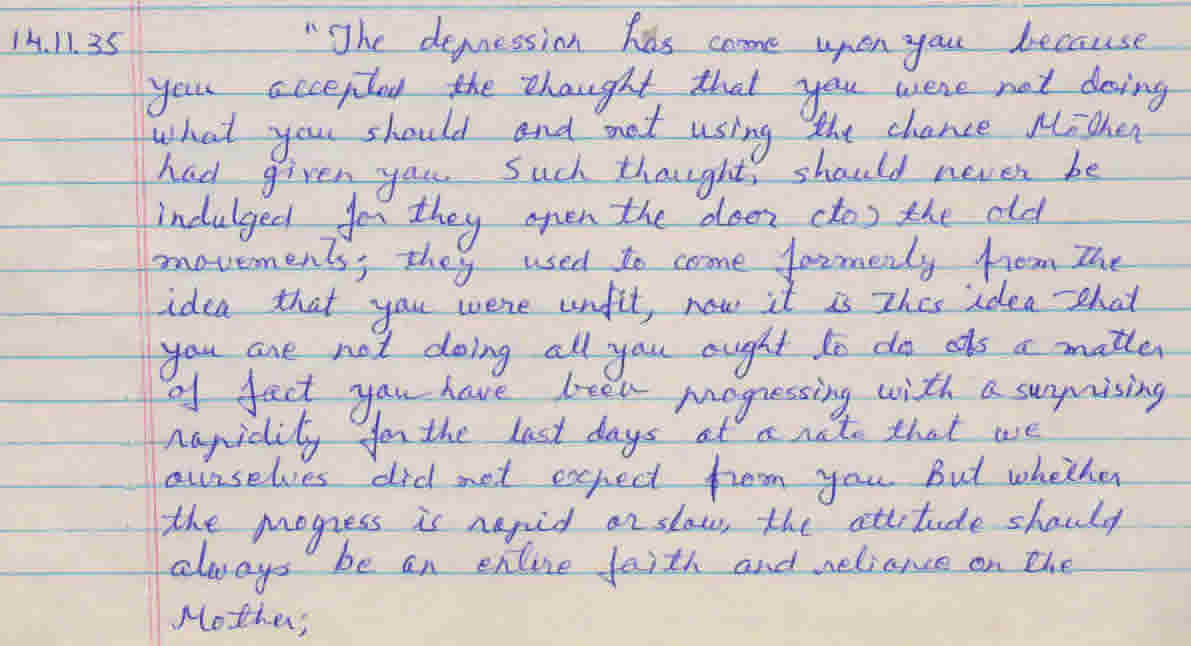 14.11.35 "The depression has come upon you because
you accepted the thought that you were not doing
what you should and not using the chance Mother
had given you. Such thoughts should never be
indulged for they open the door (to) the old
movements; they used to come formerly from the
idea that you were unfit, now it is this idea that
you are not doing all you ought to do As a matter
of fact you have been progressing with a surprising
rapidity for the last days at a rate that we
ourselves did not expect from you But whether
the progress is rapid or slow, the attitude should
always be an entire faith and reliance on the
Mother;